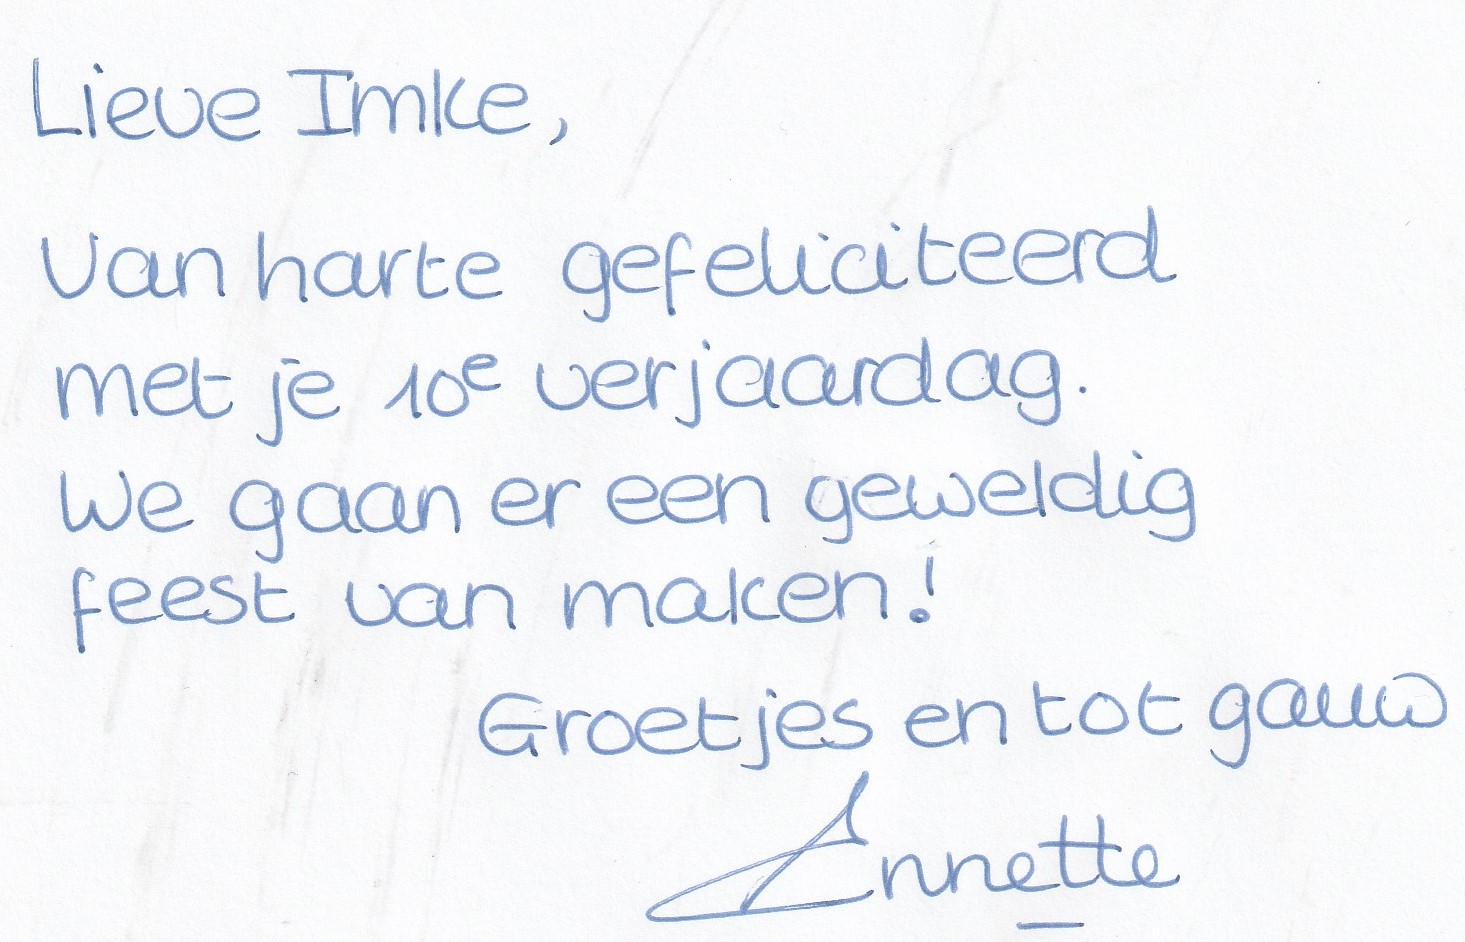 Lieve Imke,
Van harte gefeliciteerd
met je 10e verjaardag.
We gaan er een geweldig
feest van maken!
Groetjes en tot gauw
Annette